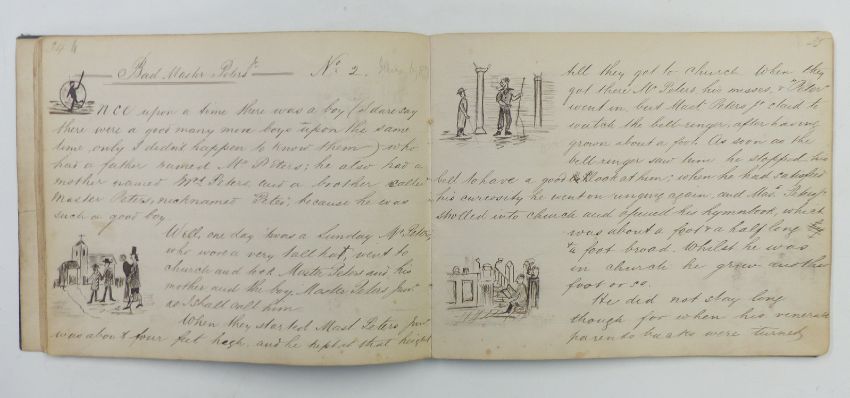 24
Bad Master Peters Jr No 2.
Once upon a time there was a boy (I dare say
there were a good many men boys upon the same
time, only I didn't happen to know them) who
had a father named Mr Peters; he also had a
mother named Mrs Peters, and a brother called
Master Peters, nicknamed Peter, because he was
such a good boy.
Well, one day 'twas a Sunday Mr Peters,
who wore a very tall hat, went to
church and took Master Peters and his
mother and the boy Master Peters Junr
as I shall call him.
When they started Mast Peters Junr
was about four feet high, and he kept it that height
25
till they got to church. When they
got there Mr Peters his misses, & "Peter"
went in, but Mast Peters Jr staid to
watch the bell-ringer, after having
grown about a foot. As soon as the
bell-ringer saw him he stopped his
bell to have a good look at him; when he had satisfied
his curiosity he went on ringing again, and Mas. Peters Jr
strolled into church and opened his hymnbook, which
was about a foot & a half long
& a foot broad. Whilst he was
in church he grew another
foot or so.
He did not stay long
though for when his venerable
parents backs were turned